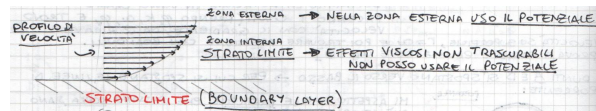 PROFILO DI
VELOCITA'
ZONA ESTERNA → NELLA ZONA ESTERNA USO IL POTENZIALE
ZONA INTERNA
STRATO LIMITE → EFFETTI VISCOSI NON TRASCURABILI
NON POSSO USARE IL POTENZIALE
STRATO LIMITE (BOUNDARY LAYER)